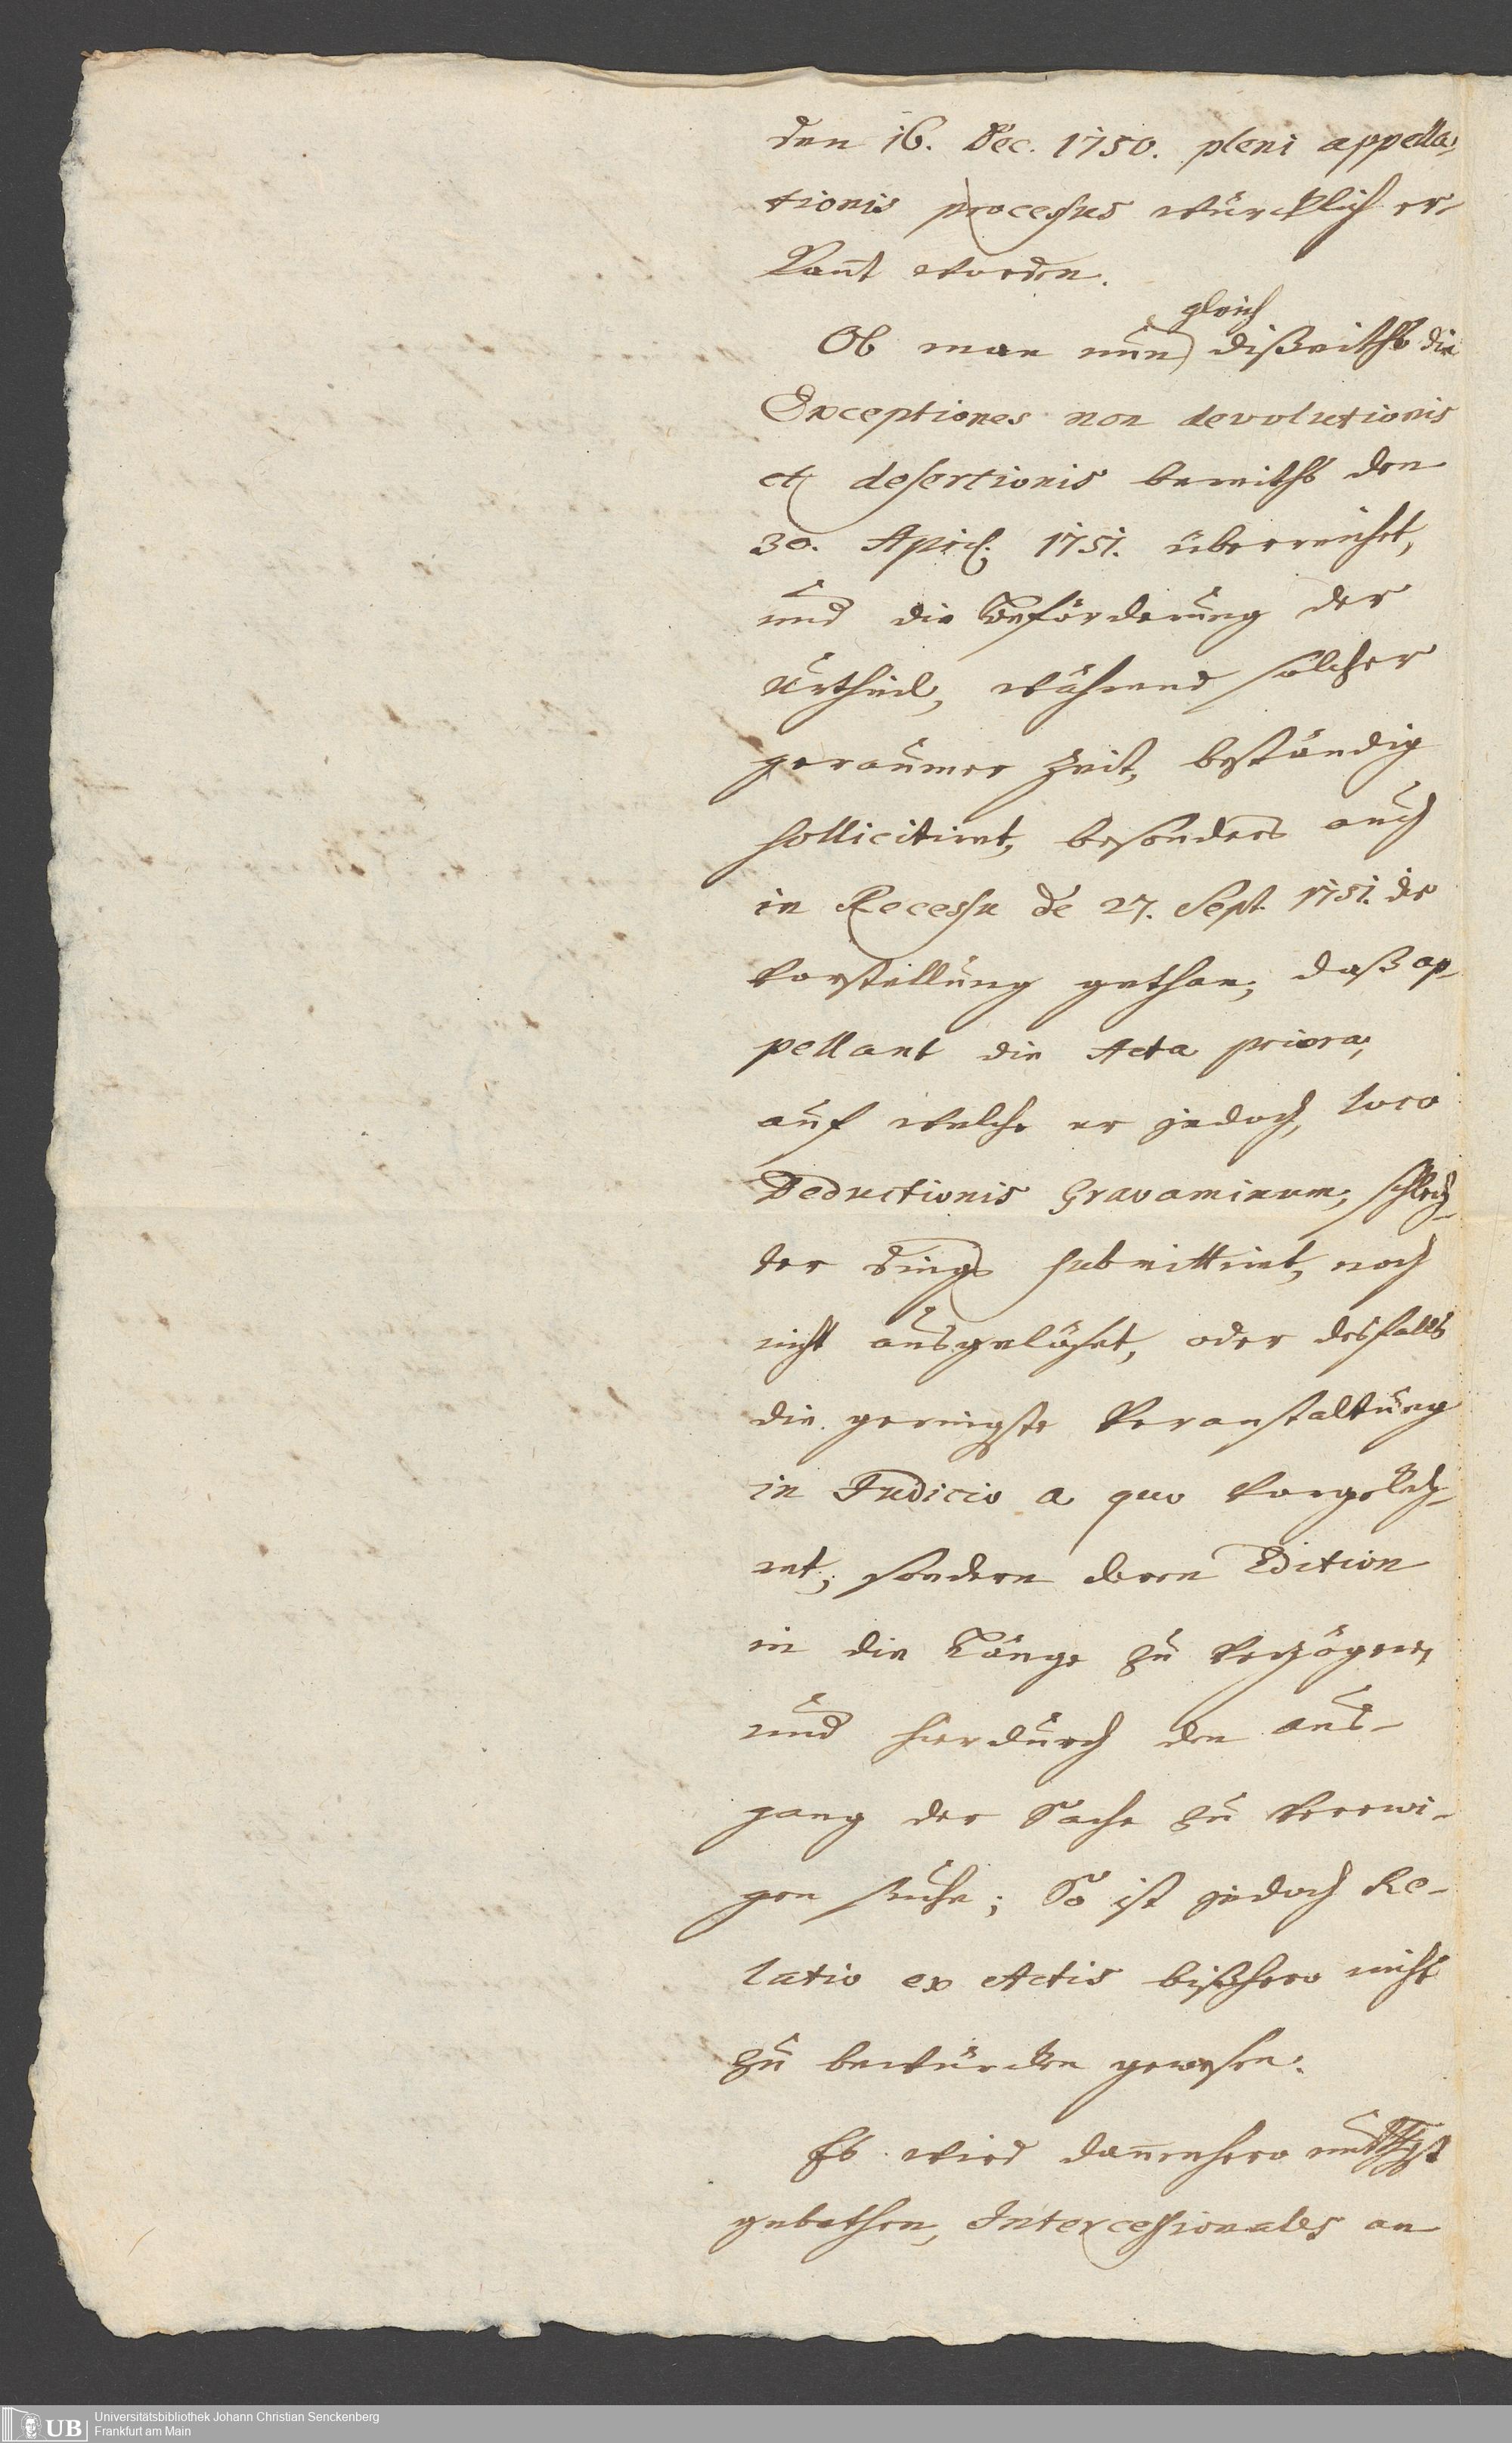 den 16. Dec. 1750. pleni appella-
tionis processus würcklich er-
kañt worden.
gleich
Ob man nun dißeiths die
Exceptiones non devolutionis
et desertionis bereiths den
30. April. 1751. überreichet,
und die Beförderung der
Urtheil, während solcher
geraumer Zeit, beständig
sollicitiret, besonders auch
in Recessu de 27. Sept. 1751. die
Vorstellung gethan, daß ap-
pellant die Acta priora,
auf welche er jedoch, loco
Deductionis Gravaminum, schlech-
ter dings submittiret, noch
nicht ausgelöset, oder desfalls
die geringste Veranstaltung
in Judicio a quo vorgekeh-
ret, sondern deren Edition
in die Länge zu verzögern,
und hierdurch den aus-
gang der Sache zu verewi-
gen suche; So ist jedoch Re-
latio ex Actis bißhero nicht
zu bewürcken gewesen.
Es wird dañenhero
gebethen, Intercessionales an
Universitätsbibliothek Johann Christian Senckenberg
Frankfurt am Main
UB